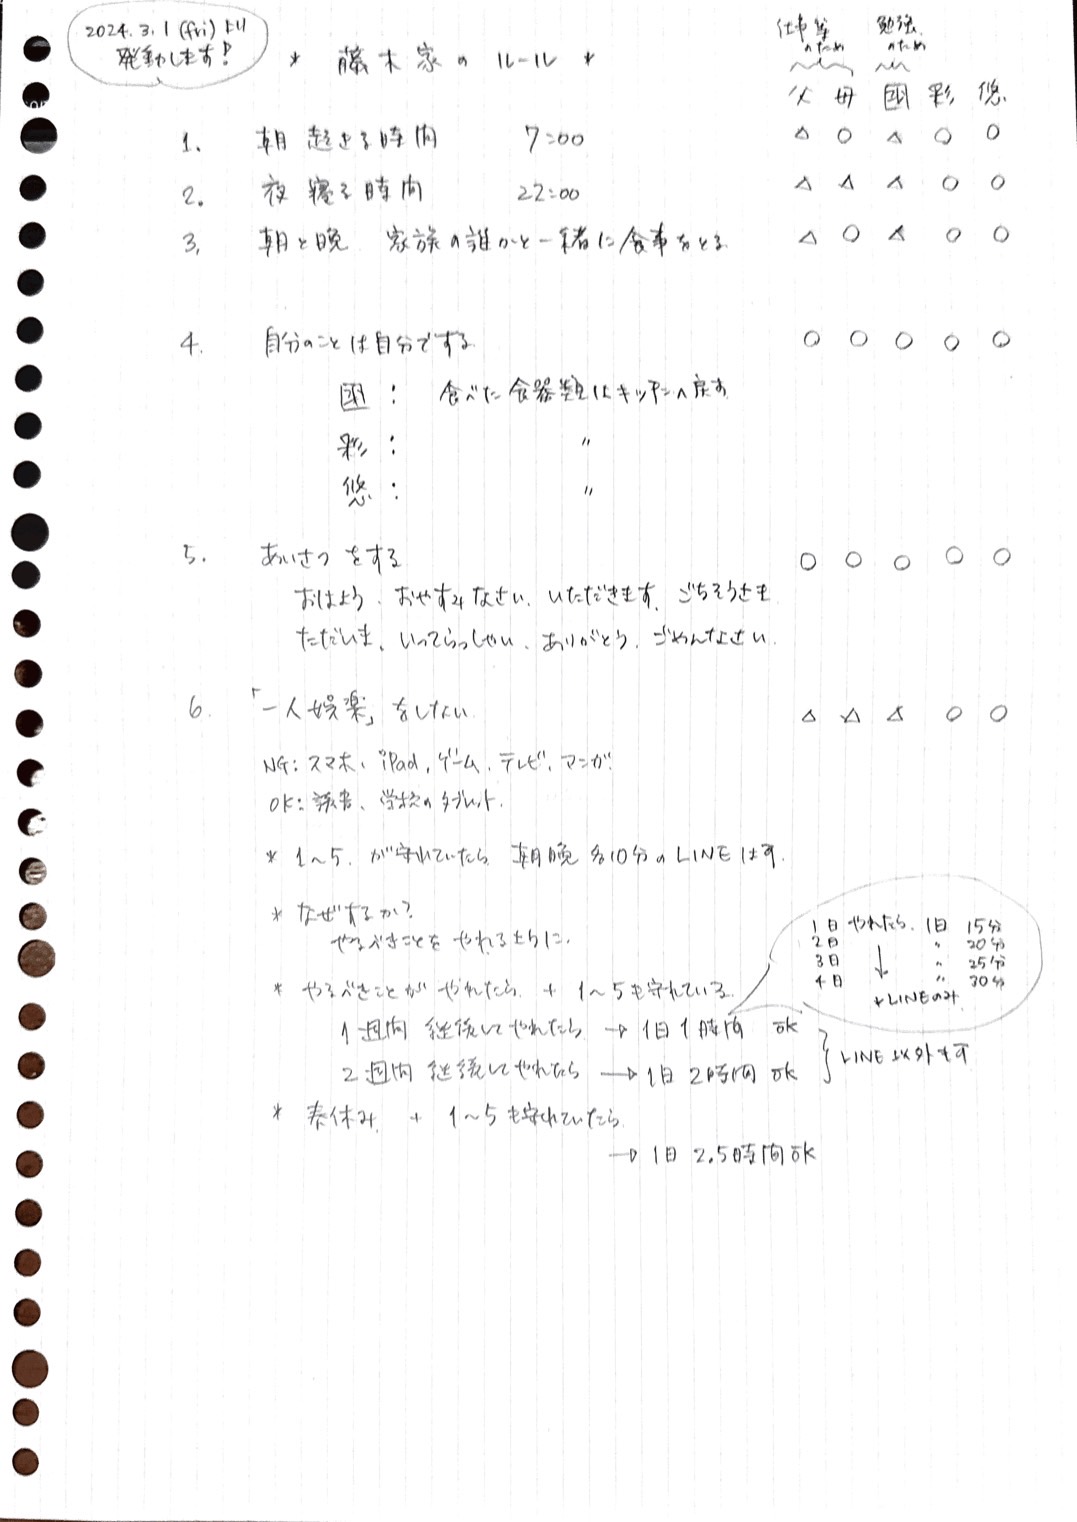 2024.3.1(fri)より
発動します!
* 藤木家のルール *
仕事等のため 勉強のため
父 母 圏 彩 悠
1. 朝起きる時間 7:00 △ ○ △ ○ ○
2. 夜寝る時間 22:00 △ △ △ ○ ○
3. 朝と晩 家族の誰かと一緒に食事をとる △ ○ △ ○ ○
4. 自分のことは自分でする ○ ○ ○ ○ ○
: 食べた食器類はキッチンへ戻す
彩: 〃
悠: 〃
5. あいさつをする ○ ○ ○ ○ ○
おはよう、おやすみなさい、いただきます、ごちそうさま
ただいま、いってらっしゃい、ありがとう、ごめんなさい
6. 「一人娯楽」をしない △ △ △ ○ ○
NG: スマホ、iPad、ゲーム、テレビ、マンガ
OK: 読書、学校のタブレット
* 1~5.が守れていたら 朝晩 各10分のLINEは可
* なぜするか?
やるべきことをやれるように。
* やるべきことがやれたら + 1~5も守れている
1週間 継続してやれたら → 1日1時間 OK
2週間 継続してやれたら → 1日2時間 OK
LINE以外も可
1日やれたら 1日 15分
2日 〃 20分
3日 ↓ 〃 25分
4日 〃 30分
*LINEのみ
* 春休み + 1~5も守れていたら
→ 1日2.5時間OK